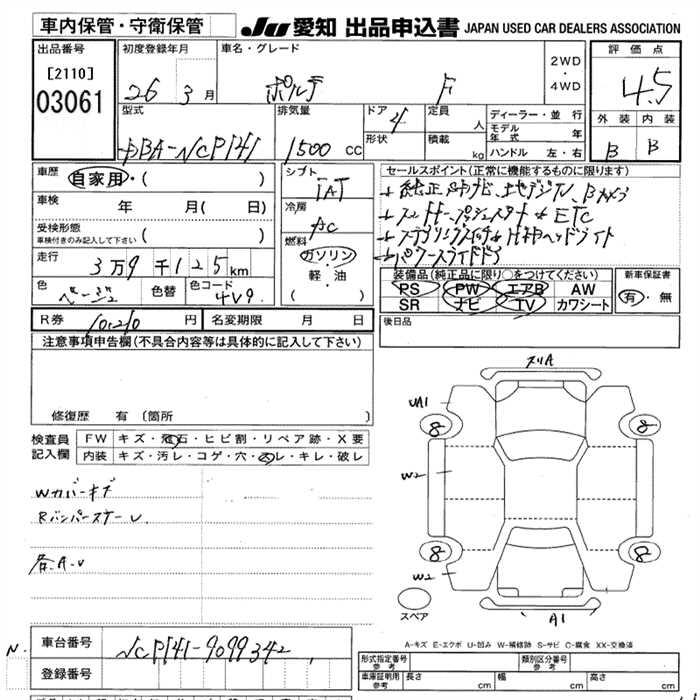 車内保管・守衛保管
JU 愛知 出品申込書 JAPAN USED CAR DEALERS ASSOCIATION
出品番号 初度登録年月 車名・グレード 評価点
[2110]
03061
26 3月 ポルテ F
2WD
・
4WD
4.5
型式 排気量 ドア 4 定員 人 ディーラー・並行 外装 内装
DBA-NCP141 1500 cc 形状 積載 kg モデル年式 年 B B
ハンドル 左・右
車歴 自家用・( )
シフト IAT
セールスポイント(正常に機能するものに限ります)
車検 年 月( 日)
冷房 AC
受検形態
車検付きのみ記入して下さい ( )
燃料
ガソリン
軽・油
( )
走行 3万9千125km
色 ベージュ 色替 色コード 4V9
純正 地デジTV Bカメラ
スマートキー プッシュスタート ETC
ヘッドライト
パワースライドドア
装備品(純正品に限り○をつけてください) 新車保証書
PS PW エアB AW 有・無
SR ナビ TV カワシート
R券 10,210 円 名変期限 月 日
後日品
注意事項申告欄(不具合内容等は具体的に記入して下さい)
修復歴 有 〔箇所 〕
検査員記入欄
FW キズ・飛石・ヒビ割・リペア跡・X要
内装 キズ・汚レ・コゲ・穴・スレ・キレ・破レ
Wカバーキズ
Rバンパースナーレ
各A.U
スリA
UA1
8 8
W2
8 8
W2
スペア
A1
A-キズ E-エクボ U-凹み W-補修跡 S-サビ C-腐食 XX-交換済
N.
車台番号 NCP141-9099342
登録番号
形式指定番号 参考 類別区分番号 参考
車庫証明用 参考 長さ cm 幅 cm 高さ cm